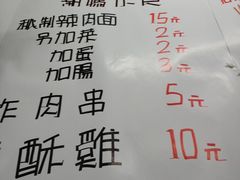 秘制辣肉面 15元
另加菜 2元
加蛋 2元
加腸 3元
炸肉串 5元
酥雞 10元